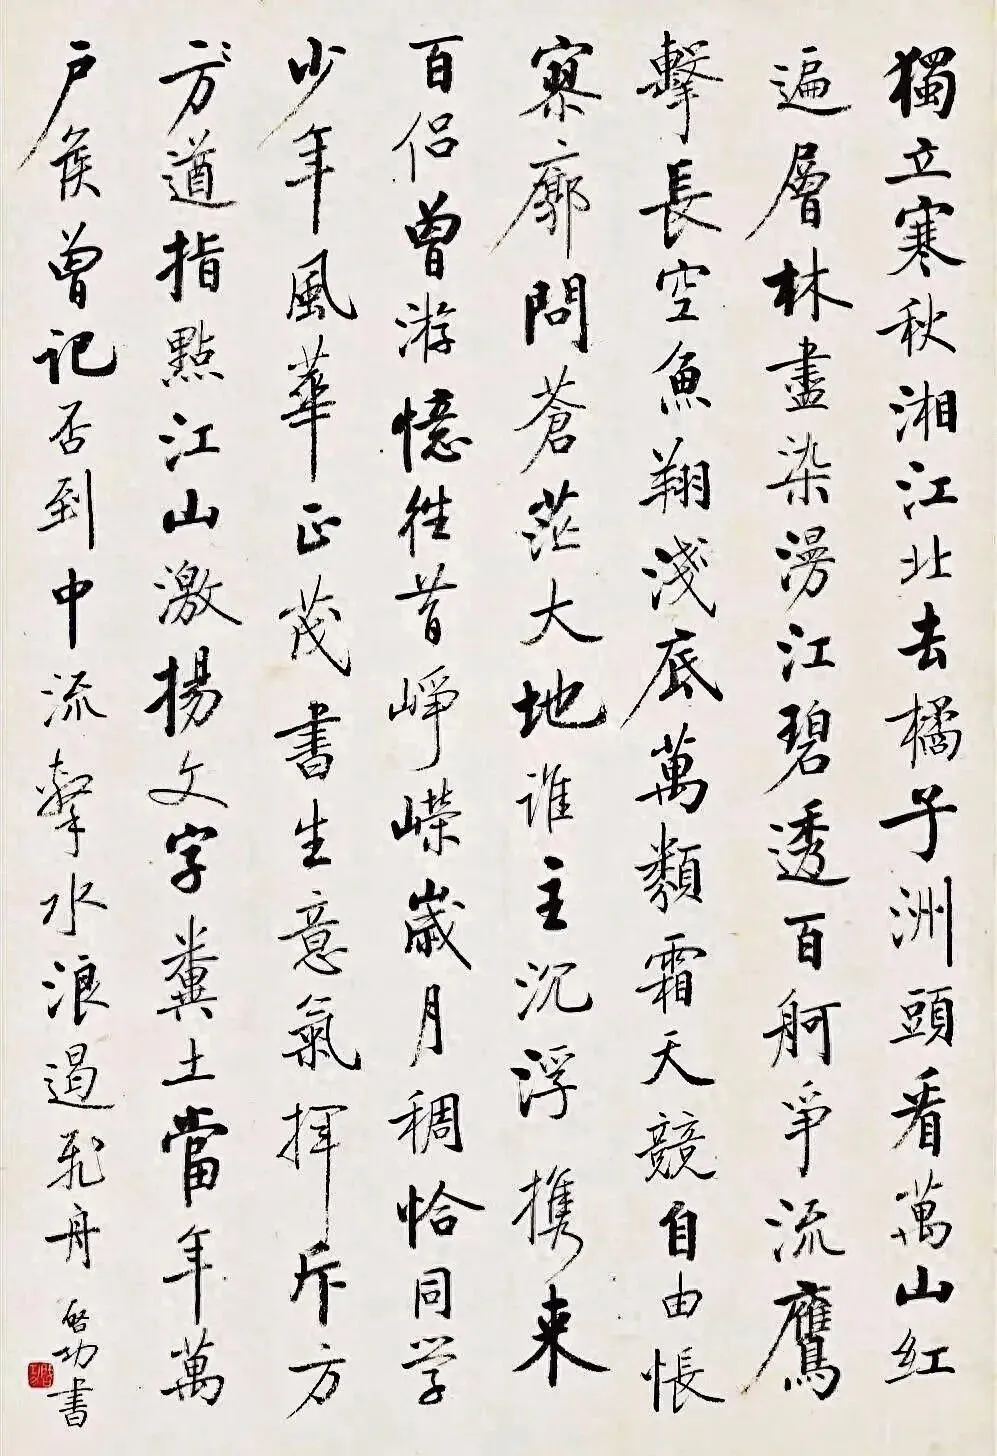 獨立寒秋湘江北去橘子洲頭看萬山红
遍層林盡染漫江碧透百舸爭流鷹
擊長空魚翔淺底萬類霜天競自由悵
寥廓問蒼茫大地谁主沉浮携来
百侣曾游憶往昔崢嶸歲月稠恰同学
少年風華正茂書生意氣揮斥方
方遒指點江山激揚文字糞土當年萬
户侯曾记否到中流擊水浪遏飛舟
啓功書